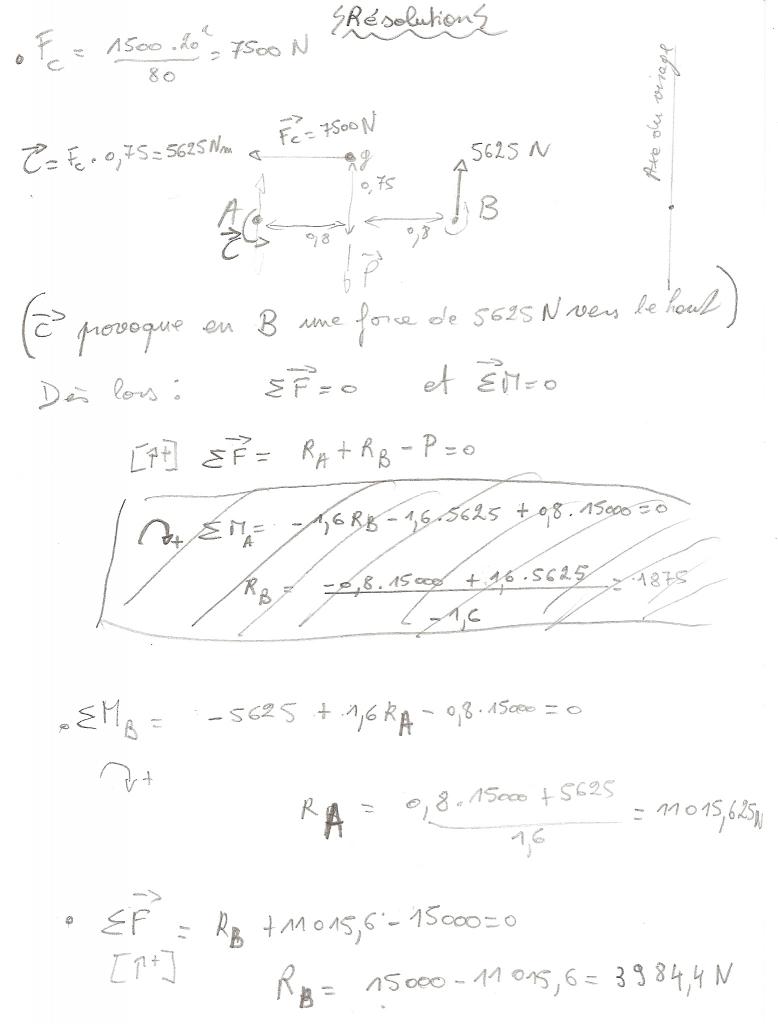 Résolution
• Fc = 1500 . 20² / 80 = 7500 N
Axe du virage
C = Fc . 0,75 = 5625 Nm
Fc = 7500 N
g
5625 N
0,75
A
B
0,8
0,8
C
P
(C provoque en B une force de 5625 N vers le haut)
Dès lors : ΣF = 0 et ΣM = 0
[↑+] ΣF = RA + RB - P = 0
↷+ ΣMA = - 1,6 RB - 1,6 . 5625 + 0,8 . 15000 = 0
RB = -0,8 . 15000 + 1,6 . 5625 / -1,6 = 1875
• ΣMB = - 5625 + 1,6 RA - 0,8 . 15000 = 0
↷+
RA = 0,8 . 15000 + 5625 / 1,6 = 11015,625 N
• ΣF = RB + 11015,6 - 15000 = 0
[↑+]
RB = 15000 - 11015,6 = 3984,4 N